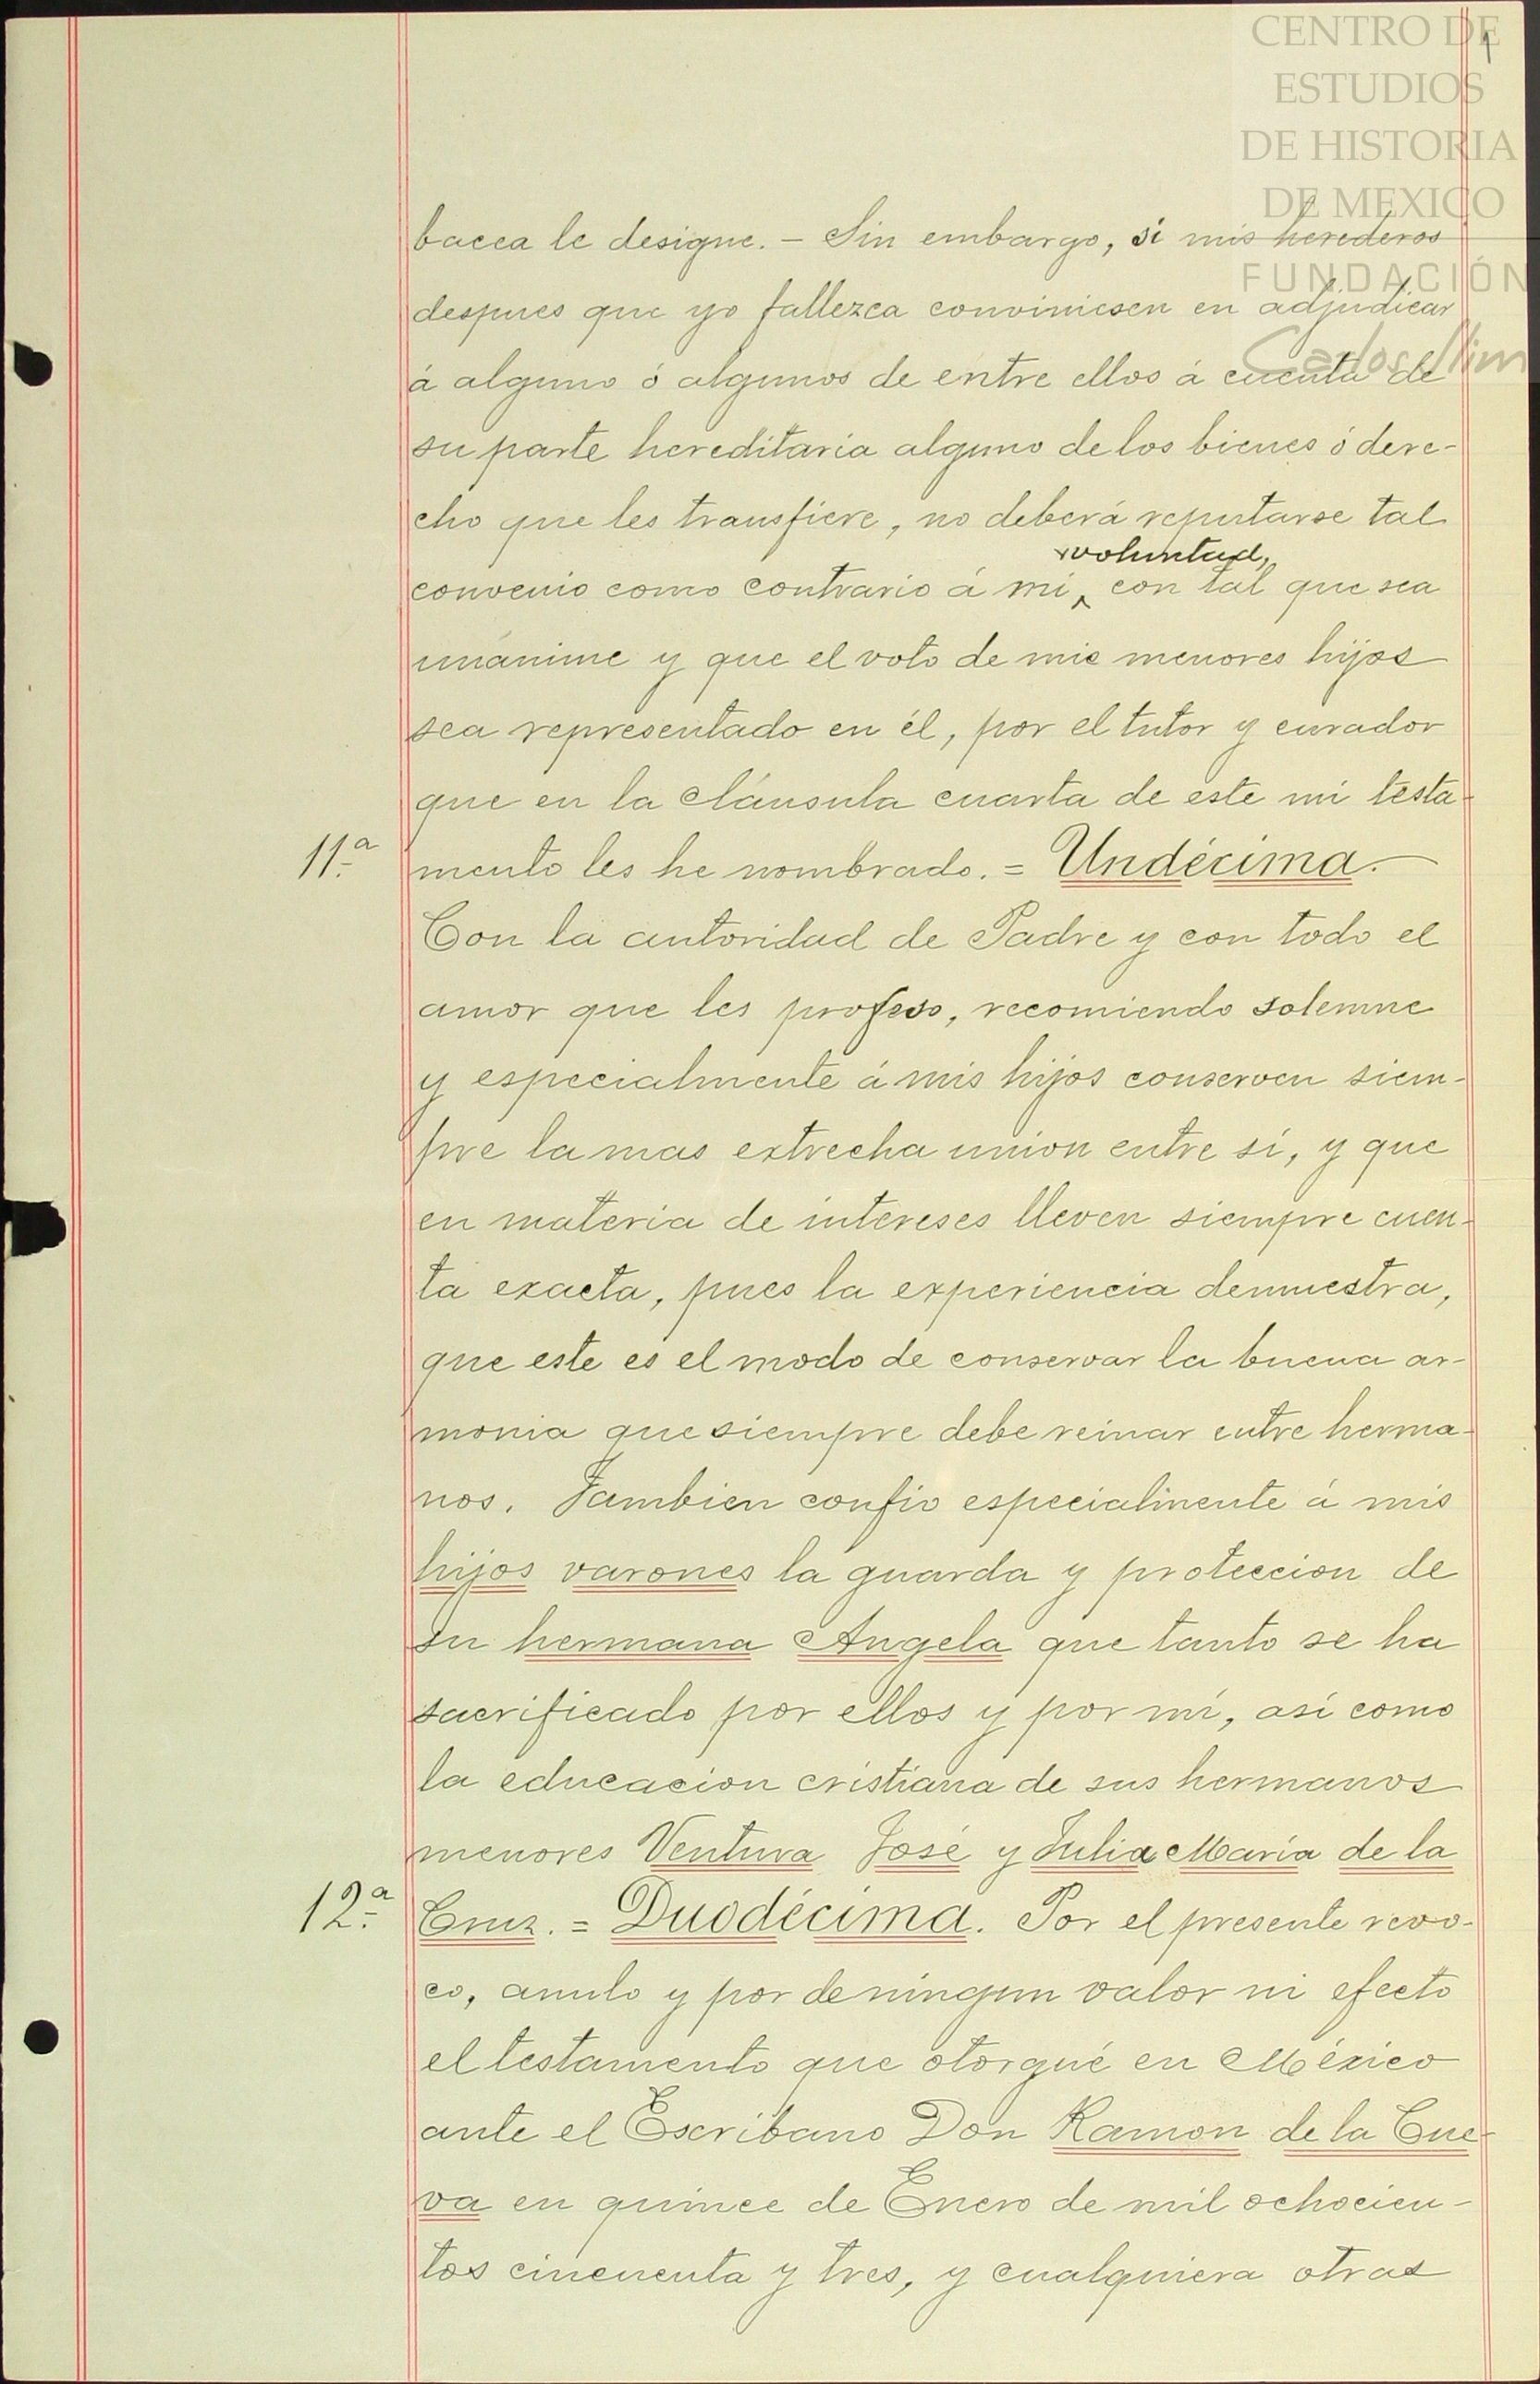 CENTRO DE
ESTUDIOS
DE HISTORIA
DE MEXICO
FUNDACIÓN
Carlos Slim
1
bacea le designe. - Sin embargo, si mis herederos
despues que yo fallezca conviniesen en adjudicar
á alguno ó algunos de entre ellos á cuenta de
su parte hereditaria alguno de los bienes ó dere-
cho que les transfiere, no deberá reputarse tal
voluntad,
convenio como contrario á mi ‸ con tal que sea
unánime y que el voto de mis menores hijos
sea representado en él, por el tutor y curador
que en la cláusula cuarta de este mi testa-
11.ª mento les he nombrado. = Undécima.
Con la autoridad de Padre y con todo el
amor que les profeso, recomiendo solemne
y especialmente á mis hijos conserven siem-
pre la mas extrecha union entre sí, y que
en materia de intereses lleven siempre cuen-
ta exacta, pues la experiencia demuestra,
que este es el modo de conservar la buena ar-
monia que siempre debe reinar entre herma-
nos. Tambien confio especialmente á mis
hijos varones la guarda y proteccion de
su hermana Angela que tanto se ha
sacrificado por ellos y por mí, así como
la educacion cristiana de sus hermanos
menores Ventura José y Julia María de la
12.ª Cruz. = Duodécima. Por el presente revo-
co, anulo y por de ningun valor ni efecto
el testamento que otorgué en México
ante el Escribano Don Ramon de la Cue-
va en quince de Enero de mil ochocien-
tos cincuenta y tres, y cualquiera otras